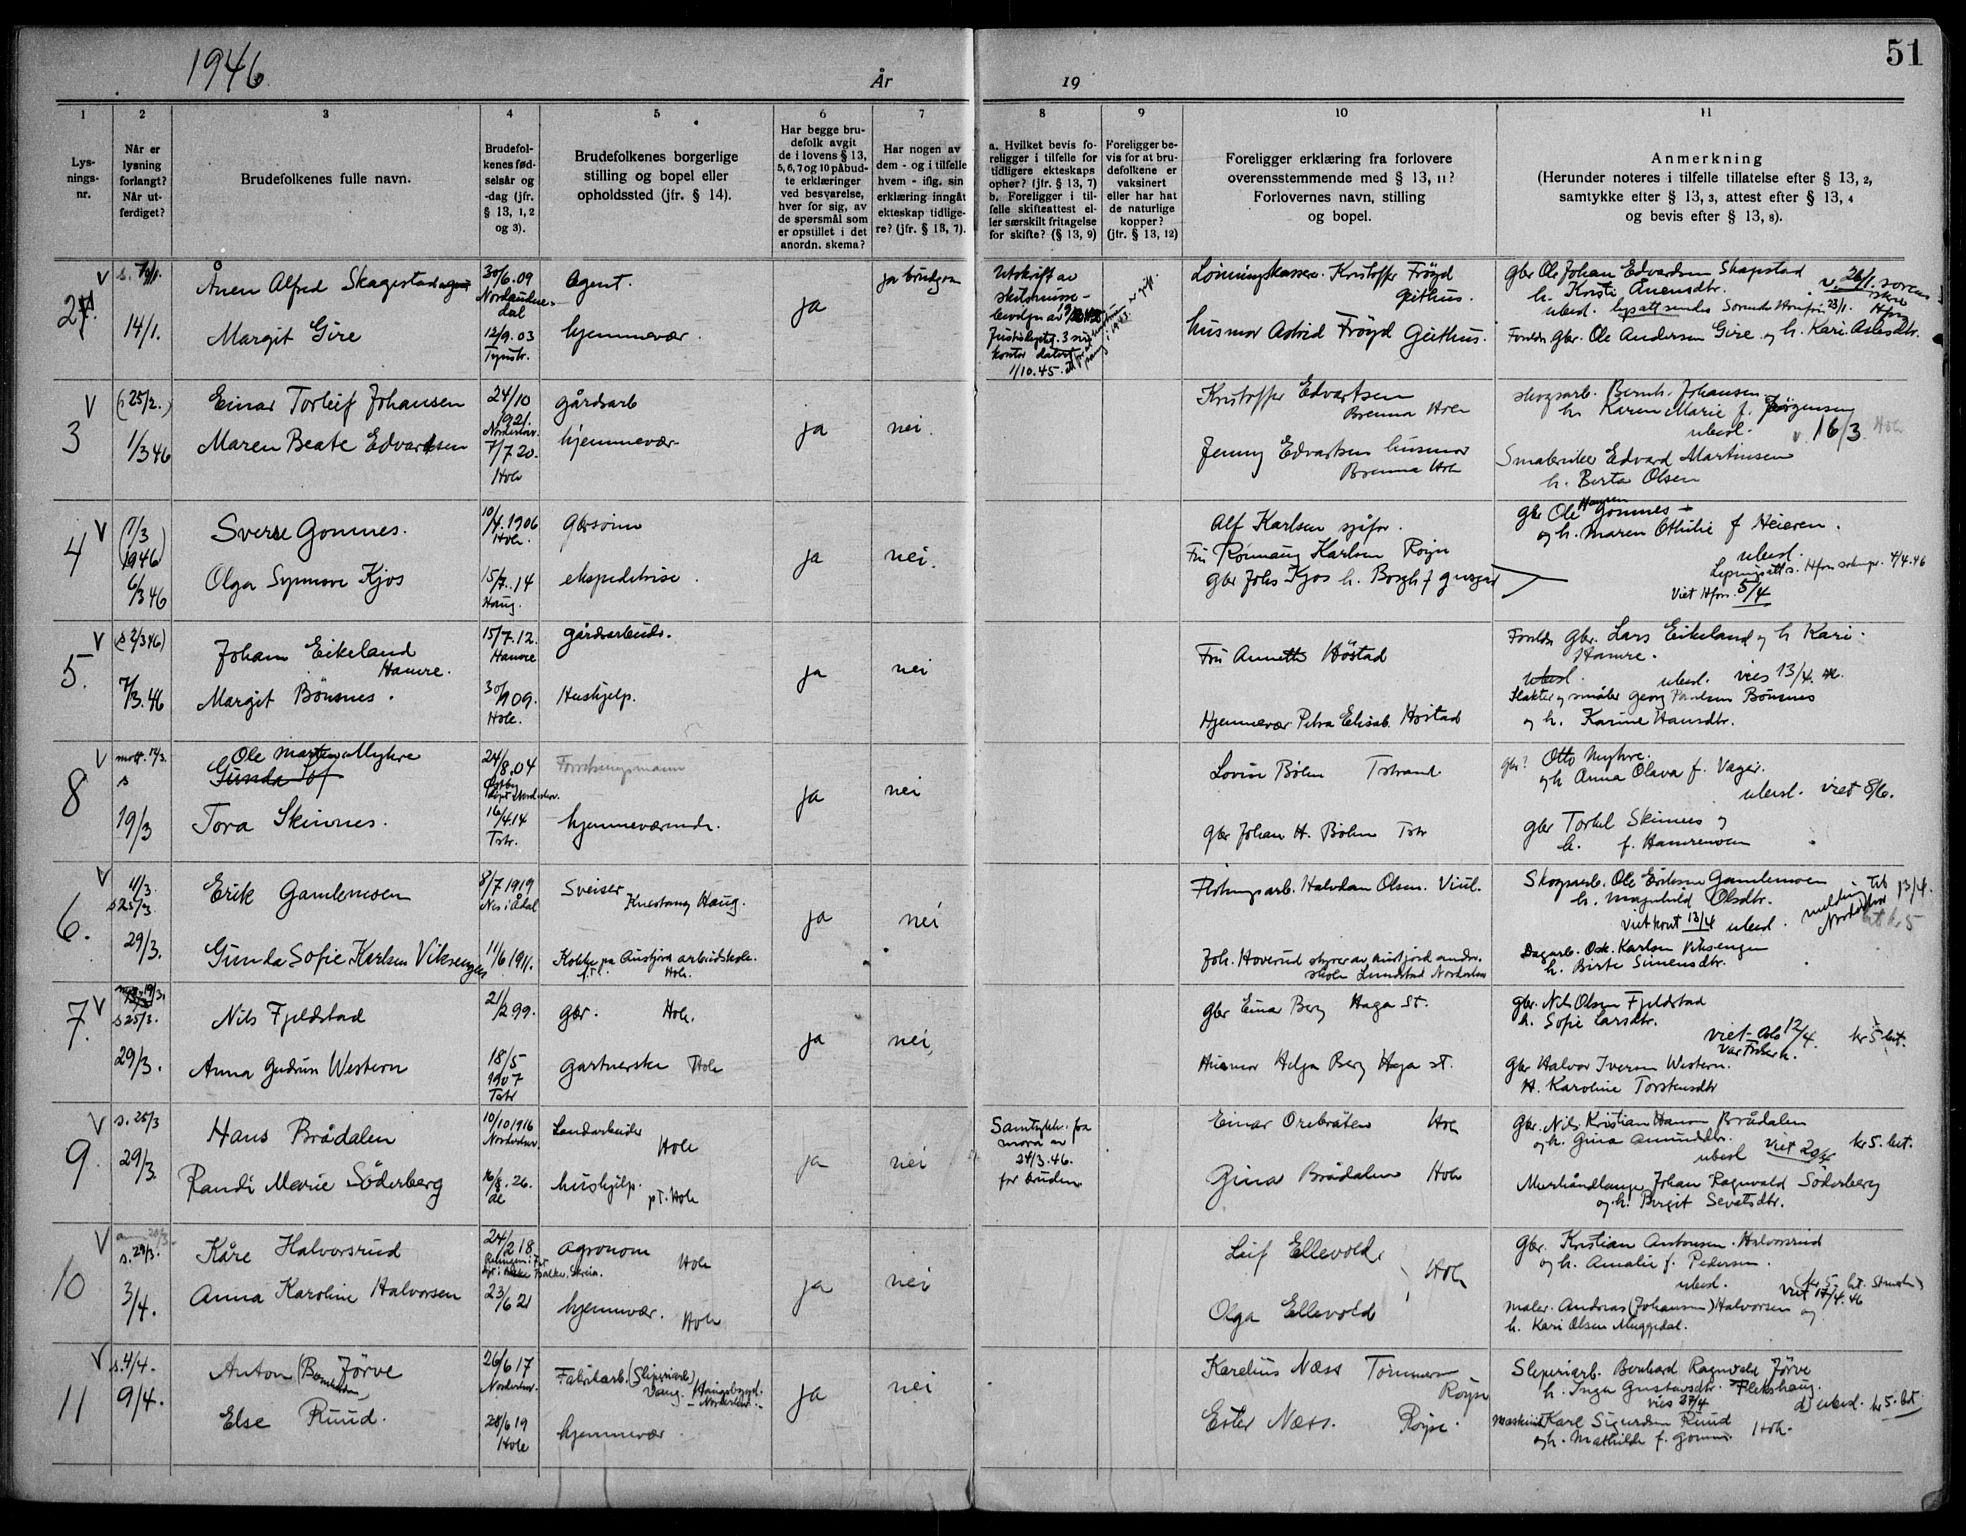 1946
År
19
51
1
2
3
4
5
6
7
8
9
10
11
Lys-
nings-
nr.
Når er
lysning
forlangt?
Når ut-
ferdiget?
Brudefolkenes fulle navn.
Brudefol-
kenes fød-
selsår og
-dag (jfr.
§ 13, 1, 2
og 3).
Brudefolkenes borgerlige
stilling og bopel eller
opholdssted (jfr. § 14).
Har begge bru-
defolk avgit
de i lovens § 13,
5, 6, 7 og 10 påbud-
te erklæringer
ved besvarelse,
hver for sig, av
de spørsmål som
er opstillet i det
anordn. skema?
Har nogen av
dem - og i tilfelle
hvem - iflg. sin
erklæring inngått
ekteskap tidlige-
re? (jfr. § 13, 7).
a. Hvilket bevis fo-
religger i tilfelle for
tidligere ekteskaps
ophør? (jfr. § 13, 7)
b. Foreligger i til-
felle skifteattest el-
ler særskilt fritagelse
for skifte? (§ 13, 9)
Foreligger be-
vis for at bru-
defolkene er
vaksinert
eller har hat
de naturlige
kopper?
(jfr. § 13, 12)
Foreligger erklæring fra forlovere
overensstemmende med § 13, 11?
Forlovernes navn, stilling
og bopel.
Anmerkning
(Herunder noteres i tilfelle tillatelse efter § 13, 2,
samtykke efter § 13, 3, attest efter § 13, 4
og bevis efter § 13, 8).
V
2
14/1.
Ånen Alfred Skagestad
Margit Gire
30/6.09
12/9.03
Tynstr.
Agent.
hjemmevær.
ja
ja brudgom
Utskrift av
1/10.45.
Kristoffer Frøyd
Geithus.
husmor Astrid Frøyd Geithus.
gbr Ole Johan Edvardsen Skagestad
h. Kristi Anensdtr.
ubesl.
gbr. Ole Andersen Gire og h. Kari Aslesdtr.
V
3
(s 25/2.)
1/3 46
Einar Torleif Johansen
Maren Beate Edvartsen
24/10
1921.
7/7 20.
Hole
gårdsarb
hjemmevær
ja
nei.
Kristoffer Edvartsen
Brenna Hole
Jenny Edvartsen husmor
Brenna Hole
skogsarb. Bernh. Johansen
h. Karen Marie f. Jørgensen
ubesl.
v. 16/3 Hole
Edvard Martinsen
h. Berta Olsen
V
4
(1/3
1946)
6/3 46
Sverre Gomnes.
Olga Synnøve Kjos
10/4.1906
Hole.
15/7.14
Haug.
Gbrsønn
ekspeditrise.
ja
nei.
Alf Karlsen sjåfør.
Fru Rønnaug Karlsen Røyse
Gbr Johs Kjos h. Borgh f
gbr Ole Hansen Gomnes
og h. Maren Othilie f Heieren.
ubesl.
4/4.46
Viet Hfoss. 5/4
V
5.
(s 2/3 46)
7/3.46
Johan Eikeland
Hamre.
Margit Bönsnes.
15/7.12.
Hamre
30/9 09.
Hole.
gårdsarbeide.
Hushjelp.
ja
nei
Fru Annette Höstad
Hjemmevær Petra Elisab. Höstad
Foreldr gbr. Lars Eikeland og h Kari
Hamre.
ubesl.
ubesl. vies 13/4.
Slakter og småbr Georg Paulsen Bönsnes
og h. Karine Hansdtr.
V
8
mott. 12/3.
s
19/3
Ole Marten Myhre
Gunda Sof
Tora Skinnes.
24/8.04
16/4.14
Tstr.
Forretningsmann
hjemmeværende.
ja
nei
Lovise Böhn Tstrand
gbr Johan H. Böhn Tstr
gbr? Otto Myhre.
og h Anna Olava f. Vager.
ubesl. viet 8/6.
gbr Torkel Skinnes og
h. f. Hamremoen
V
6.
11/3.
s 25/3.
29/3.
Erik Gamlemoen
Gunda Sofie Karlsen Viksengen
8/7 1919
Nes i Ådal
11/6 1911.
Sveiser
Haug.
Kokke på Ausfjord arbeidsskole.
Hole.
ja
nei
Flötningsarb. Halvdan Olsen. Viul.
Joh. Hoverud styrer av Ausfjord
skole Lundstad Norderhov
Skogsarb. Ole Eriksen Gamlemoen
h. Magnhild Olsdtr.
viet kont 13/4 ubesl.
melding
13/4.
bet kr 5
Dagarb. Osk. Karlsen Viksengen
h. Birte Simensdtr.
V
7.
s 25/3.
29/3.
Nils Fjeldstad
Anna Gudrun Western
21/2 99.
18/5
1907
Tstr
gbr. Hole.
Gartnerske Hole
ja
nei,
gbr Einar Berg Haga St.
Husmor Helga Berg Haga st.
gbr. Nils Olsen Fjeldstad
h. Sofie Larsdtr.
viet Oslo 12/4.
kr 5 bet.
Gbr Halvor Iversen Western.
H. Karoline Torstensdtr
V
9.
s. 25/3
29/3.
Hans Brådalen
Randi Marie Söderberg
10/10 1916
Norderhov.
16/8. 26.
Landarbeider
Hole
hushjelp.
pt. Hole
ja
nei
Samtykke fra
mora av
24/3.46.
for bruden
Einar Orebråten Hole
Gina Brådalen Hole
Gbr. Nils Kristian Hansen Brådalen
og h. Gina Amundsdtr.
ubesl viet 20/4 kr 5. bet.
Murhåndlanger Johan Ragnvald Söderberg
og h. Birgit Sevatsdtr.
V
10
s. 29/3.
3/4.
Kåre Halvorsrud
Anna Karoline Halvorsen
24/2 18
23/6 21
agronom Hole
hjemmevær. Hole
ja
nei
Leif Ellevold.
Hole
Olga Ellevold
Gbr. Kristian Antonsen Halvorsrud
og h. Amalie f. Pedersen.
ubesl. kr 5 bet.
viet 17/4.46
maler. Andreas (Johansen) Halvorsen og
h. Kari Olsen Muggedal.
V
11
s. 4/4.
9/4.
Anton (Bernhardsen) Jörve
Else Ruud.
26/6 17
Norderhov.
28/6 19
Hole
Fabrikarb. (Sliperiarb)
Norderhov.
hjemmevær.
ja
nei
Karelius Næss Tömmerm
Røyse
Ester Næss. Røyse.
Sliperiarb. Bernhard Ragnvald Jörve
h. Inga Gustavsdtr. Flekshaug.
vies 27/4 ubesl. kr 5. bet
Maskinist Karl Sigurdsen Ruud
og h. Mathilde f. Gomnes Hole.